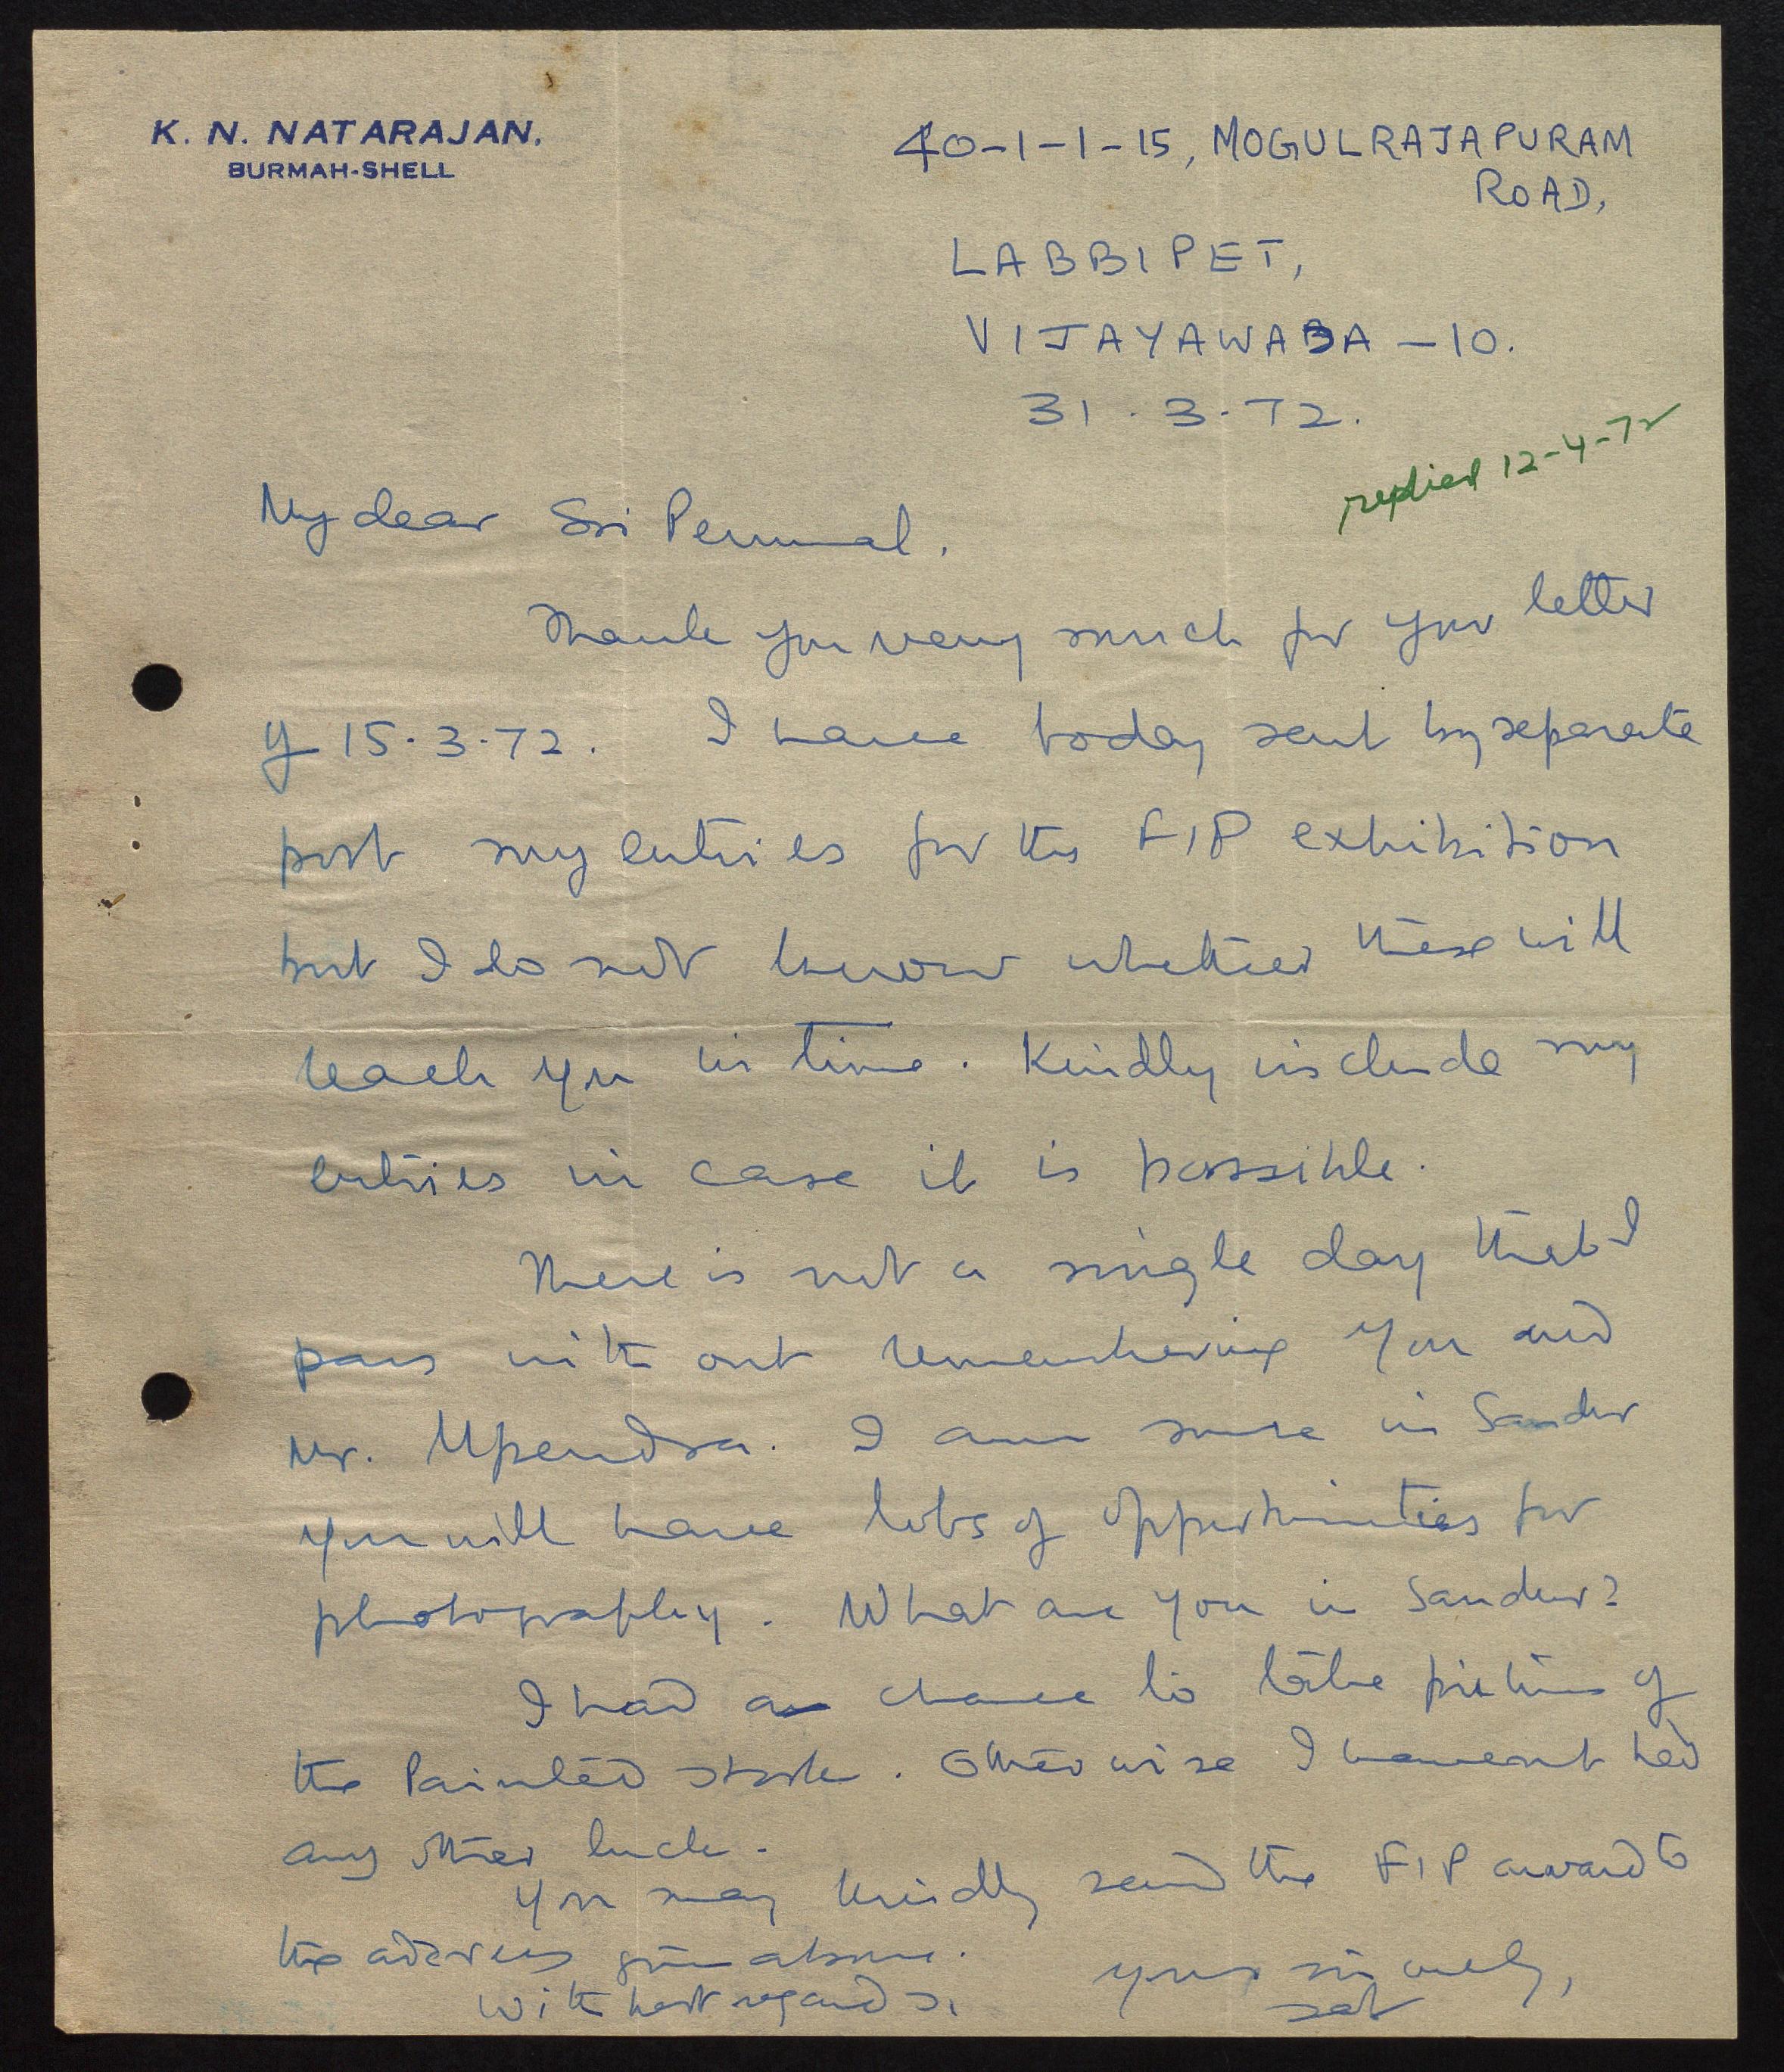 K. N. NATARAJAN.
BURMAH-SHELL
40-1-1-15, MOGULRAJAPURAM
ROAD,
LABBIPET,
VIJAYAWADA - 10.
31.3.72.
replied 12-4-72
My dear Sri Perumal,
Thank you very much for your letter
of 15.3.72. I have today sent by separate
post my entries for the FIP exhibition
but I do not know whether these will
reach you in time. Kindly include my
entries in case it is possible.
There is not a single day that I
pass with out remembering you and
Mr. Upendra. I am sure in Sandur
you will have lots of opportunities for
photography. What are you in Sandur?
I had a chance to take pictures of
the Painted stork. Otherwise I havent had
any other luck.
You may kindly send the FIP award to
the address given above.
With best regards,
yours sincerely,